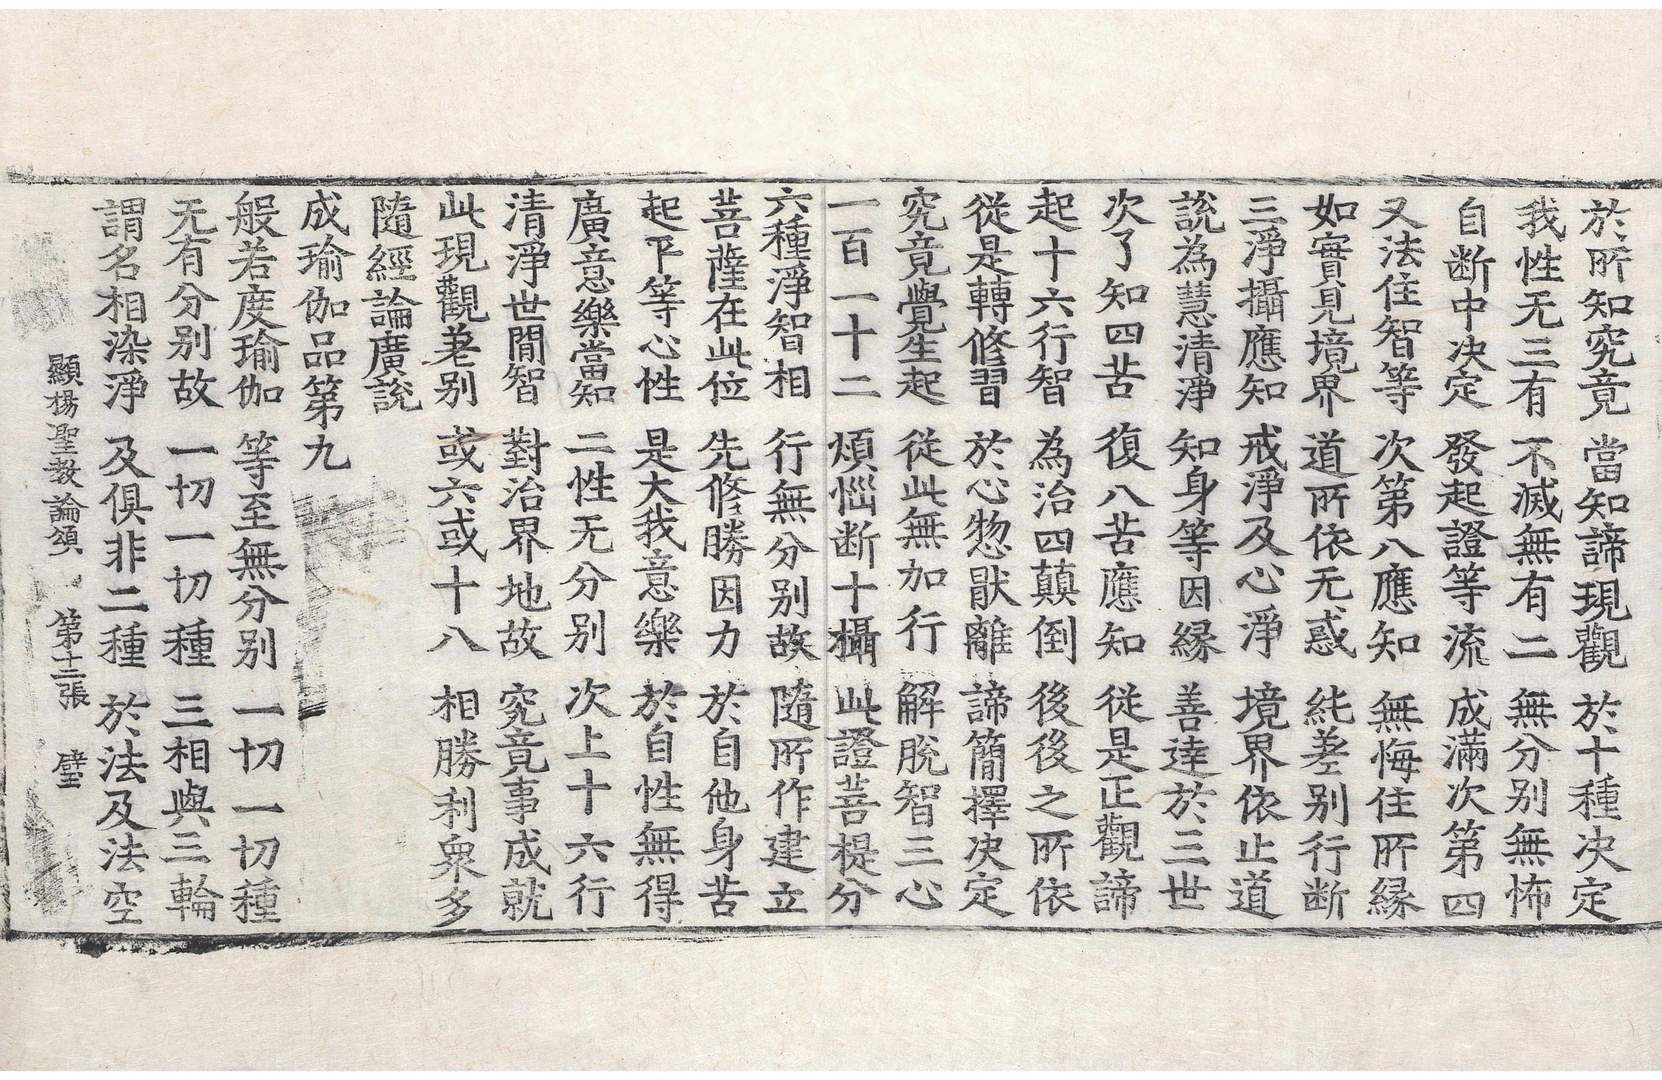 於所知究竟 當知諦現觀 於十種決定
我性无三有 不滅無有二 無分別無怖
自断中決定 發起證等流 成滿次第四
又法住智等 次第八應知 無悔住所緣
如實見境界 道所依无惑 純差別行断
三淨攝應知 戒淨及心淨 境界依止道
說為慧清淨 知身等因緣 善達於三世
次了知四苦 復八苦應知 從是正觀諦
起十六行智 為治四顛倒 後後之所依
從是轉修習 於心惣猒離 諦簡擇決定
究竟覺生起 從此無加行 解脫智三心
一百一十二 煩惱断十攝 此證菩提分
六種淨智相 行無分別故 隨所作建立
菩薩在此位 先修勝因力 於自他身苦
起平等心性 是大我意樂 於自性無得
廣意樂當知 二性无分別 次上十六行
清淨世間智 對治界地故 究竟事成就
此現觀差别 或六或十八 相勝利衆多
隨經論廣説
成瑜伽品第九
般若度瑜伽 等至無分別 一切一切種
无有分別故 一切一切種 三相與三輪
謂名相染淨 及俱非二種 於法及法空
顯揚聖教論頌 第十二張 璧